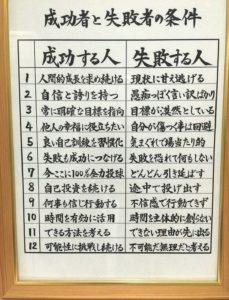 成功者と失敗者の条件
成功する人 失敗する人
1 人間的成長を求め続ける 現状に甘え逃げる
2 自信と誇りを持つ 愚痴っぽく言い訳ばかり
3 常に明確な目標を指向 目標が漠然としている
4 他人の幸福に役立ちたい 自分が傷つく事は回避
5 良い自己訓練を習慣化 気まぐれで場当たり的
6 失敗も成功につなげる 失敗を恐れて何もしない
7 今ここに100%全力投球 どんどん引き延ばす
8 自己投資を続ける 途中で投げ出す
9 何事も信じ行動する 不信感で行動できず
10 時間を有効に活用 時間を主体的に創らない
11 できる方法を考える できない理由が先に出る
12 可能性に挑戦し続ける 不可能だ無理だと考える